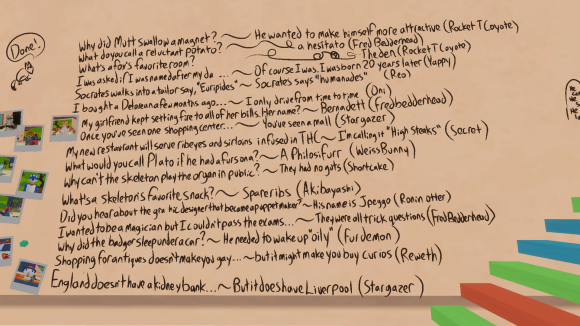 Done!
Why did Mutt swallow a magnet? ~ He wanted to make himself more attractive (Rocket T Coyote)
What do you call a reluctant potato? ~ a hesitato (Fred Bedderhead)
What's a fox's favorite room? ~ The den (Rocket T Coyote)
I was asked if I was named after my da ... ~ Of course I was. I was born 20 years later (Yappy)
Socrates walks into a tailor say, "Euripides" ~ Socrates says "Eumenades" (Reo)
I bought a Delorean a few months ago... ~ I only drive from time to time (Oni)
My girlfriend kept setting fire to all of her bills. Her name? ~ Bernadett (Fredbedderhead)
Once you've seen one shopping center... ~ You've seen a mall (Stargazer)
My new restaurant will serve ribeyes and sirloins infused in THC ~ I'm calling it "High Steaks" (Secret)
What would you call Plato if he had a fursona? ~ A Philosifurr (WeissBunny)
Why can't the skeleton play the organ in public? ~ They had no guts (Shortcake)
What's a skeleton's favorite snack? ~ Spareribs (Akibayashi)
Did you hear about the gra hic designer that became a puppet maker? ~ His name is Jpeggo (Ronin otter)
I wanted to be a magician but I couldn't pass the exams... ~ They were all trick questions (Fred Bedderhead)
Why did the badger sleep under a car? ~ He needed to wake up "oily" (Furdemon)
Shopping for antiques doesn't make you gay... ~ but it might make you buy curios (Reweth)
England doesn't have a kidney bank... ~ But it does have Liverpool (Stargazer)